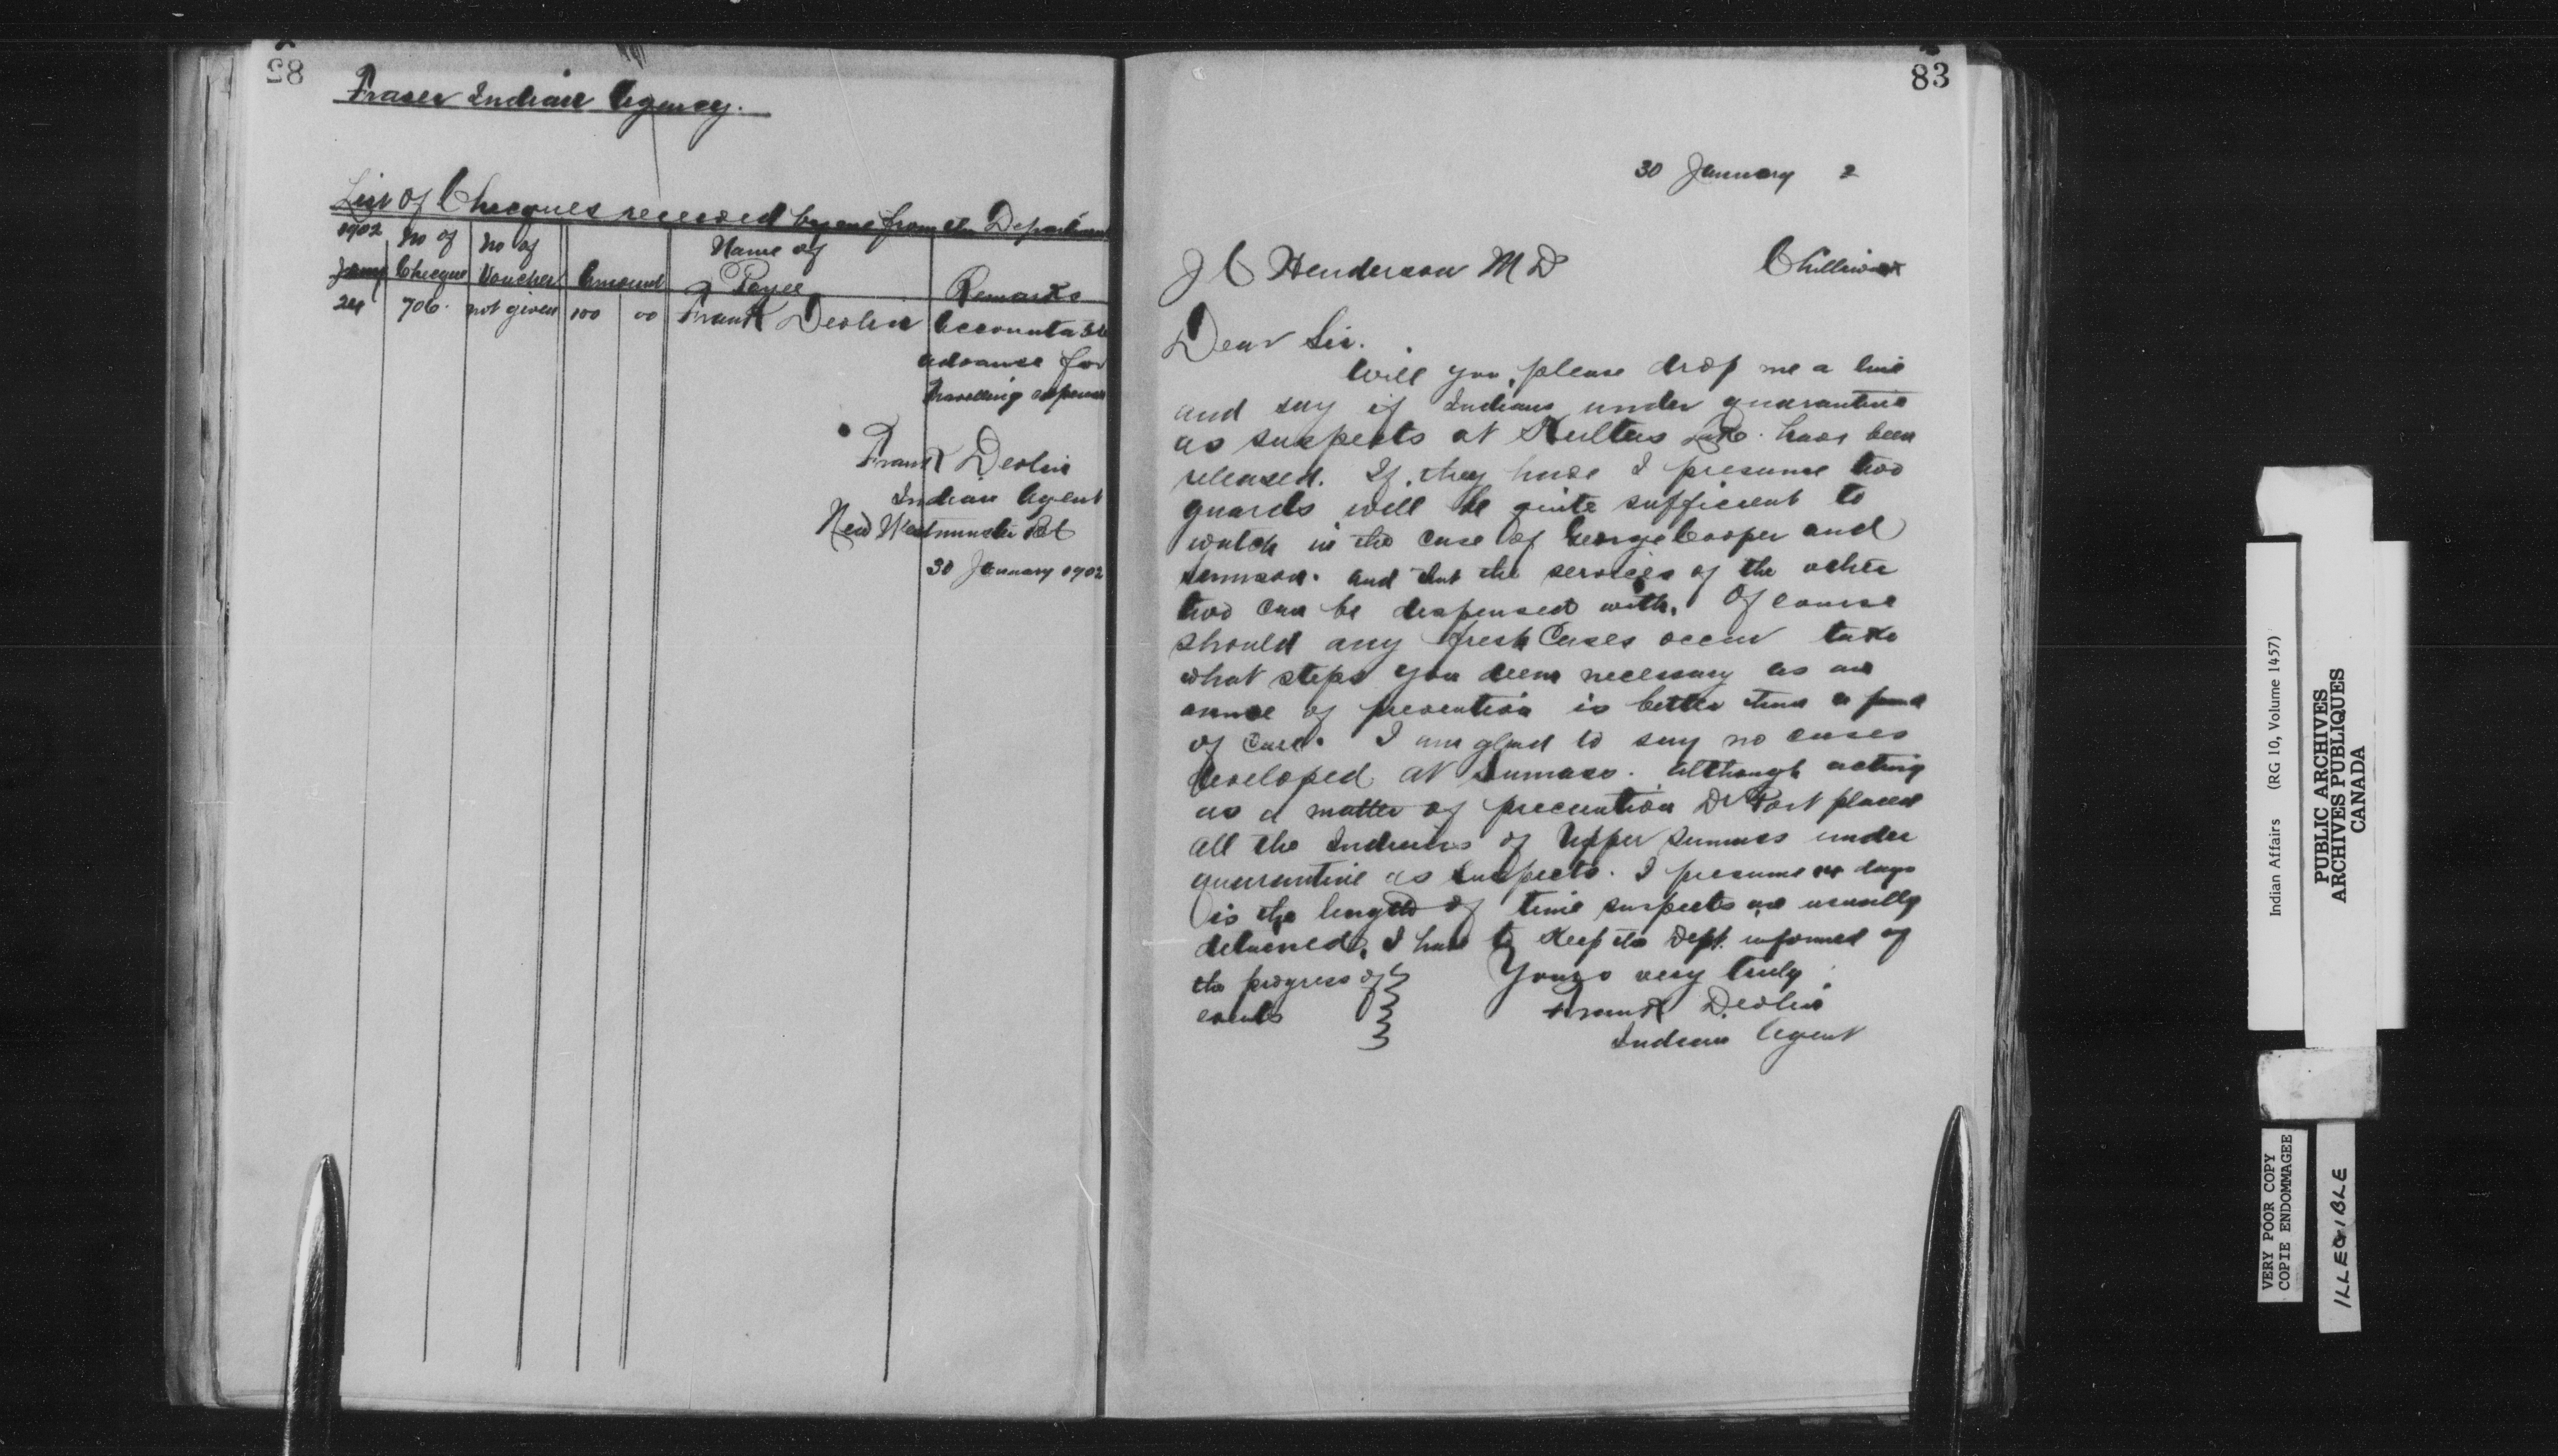 82
Fraser Indian Agency.
List of Checques received by me from the Department
1902 No of No of Name of
Jany Checque Voucher Amount Payee Remarks
24 706. not given 100 00 Frank Devlin Accountable
advance for
travelling expenses
Frank Devlin
Indian Agent
New Westminster BC
30 January 1902
83
30 January 2
J C Henderson M D Chilliwack
Dear Sir.
Will you, please drop me a line
and say if Indians under quarantine
as suspects at Kultus Lake. have been
released. If, they have I presume two
guards will be quite sufficient to
watch in the case of George Cooper and
and that the services of the other
two can be dispensed with. Of course
should any fresh Cases occur take
what steps you deem necessary as an
ounce of prevention is better than a pound
of cure. I am glad to say no cases
developed at Sumass. Although acting
as a matter of precaution Dr placed
all the Indians of Upper Sumass under
quarantine as suspects. I presume days
is the length of time suspects are usually
detained. I have to keep the Dept. informed of
the progress of Yours very truly
events Frank Devlin
Indian Agent
Indian Affairs (RG 10, Volume 1457)
PUBLIC ARCHIVES
ARCHIVES PUBLIQUES
CANADA
VERY POOR COPY
COPIE ENDOMMAGEE
ILLEGIBLE